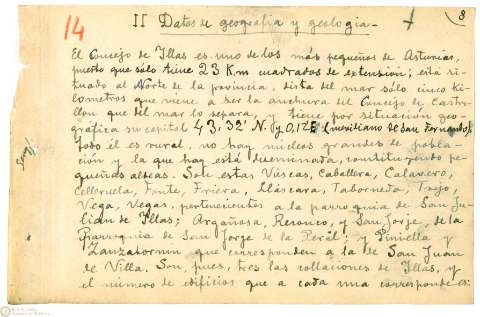 14
II Datos de geografía y geología -
8
El Concejo de Illas es uno de los más pequeños de Asturias,
puesto que sólo tiene 23 Km cuadrados de extensión; está si-
tuado al Norte de la provincia, dista del mar sólo cinco ki-
lometros que viene a ser la anchura del Concejo de Castri-
llon que del mar lo separa, y tiene por situación geo-
gráfica su capital 43,32' N. (y 0,12E (meridiano de San Fernando).
Todo él es rural, no hay núcleos grandes de pobla-
ción y la que hay está diseminada, constituyendo pe-
queñas aldeas. Son estas Viescas, Caballera, Calavero,
Celleruela, Fonte, Friera, Lláscara, Taborneda, Trejo,
Vega, Vegas, pertenecientes a la parroquia de San Ju-
lian de Illas; Argañosa, Reconco, y San Jorge, de la
Parroquia de San Jorge de la Peral; y Piniella y
Zanzabornin que corresponden a la de San Juan
de Villa. Son, pues, tres las collaciones de Illas, y
el número de edificios que a cada una corresponde es: